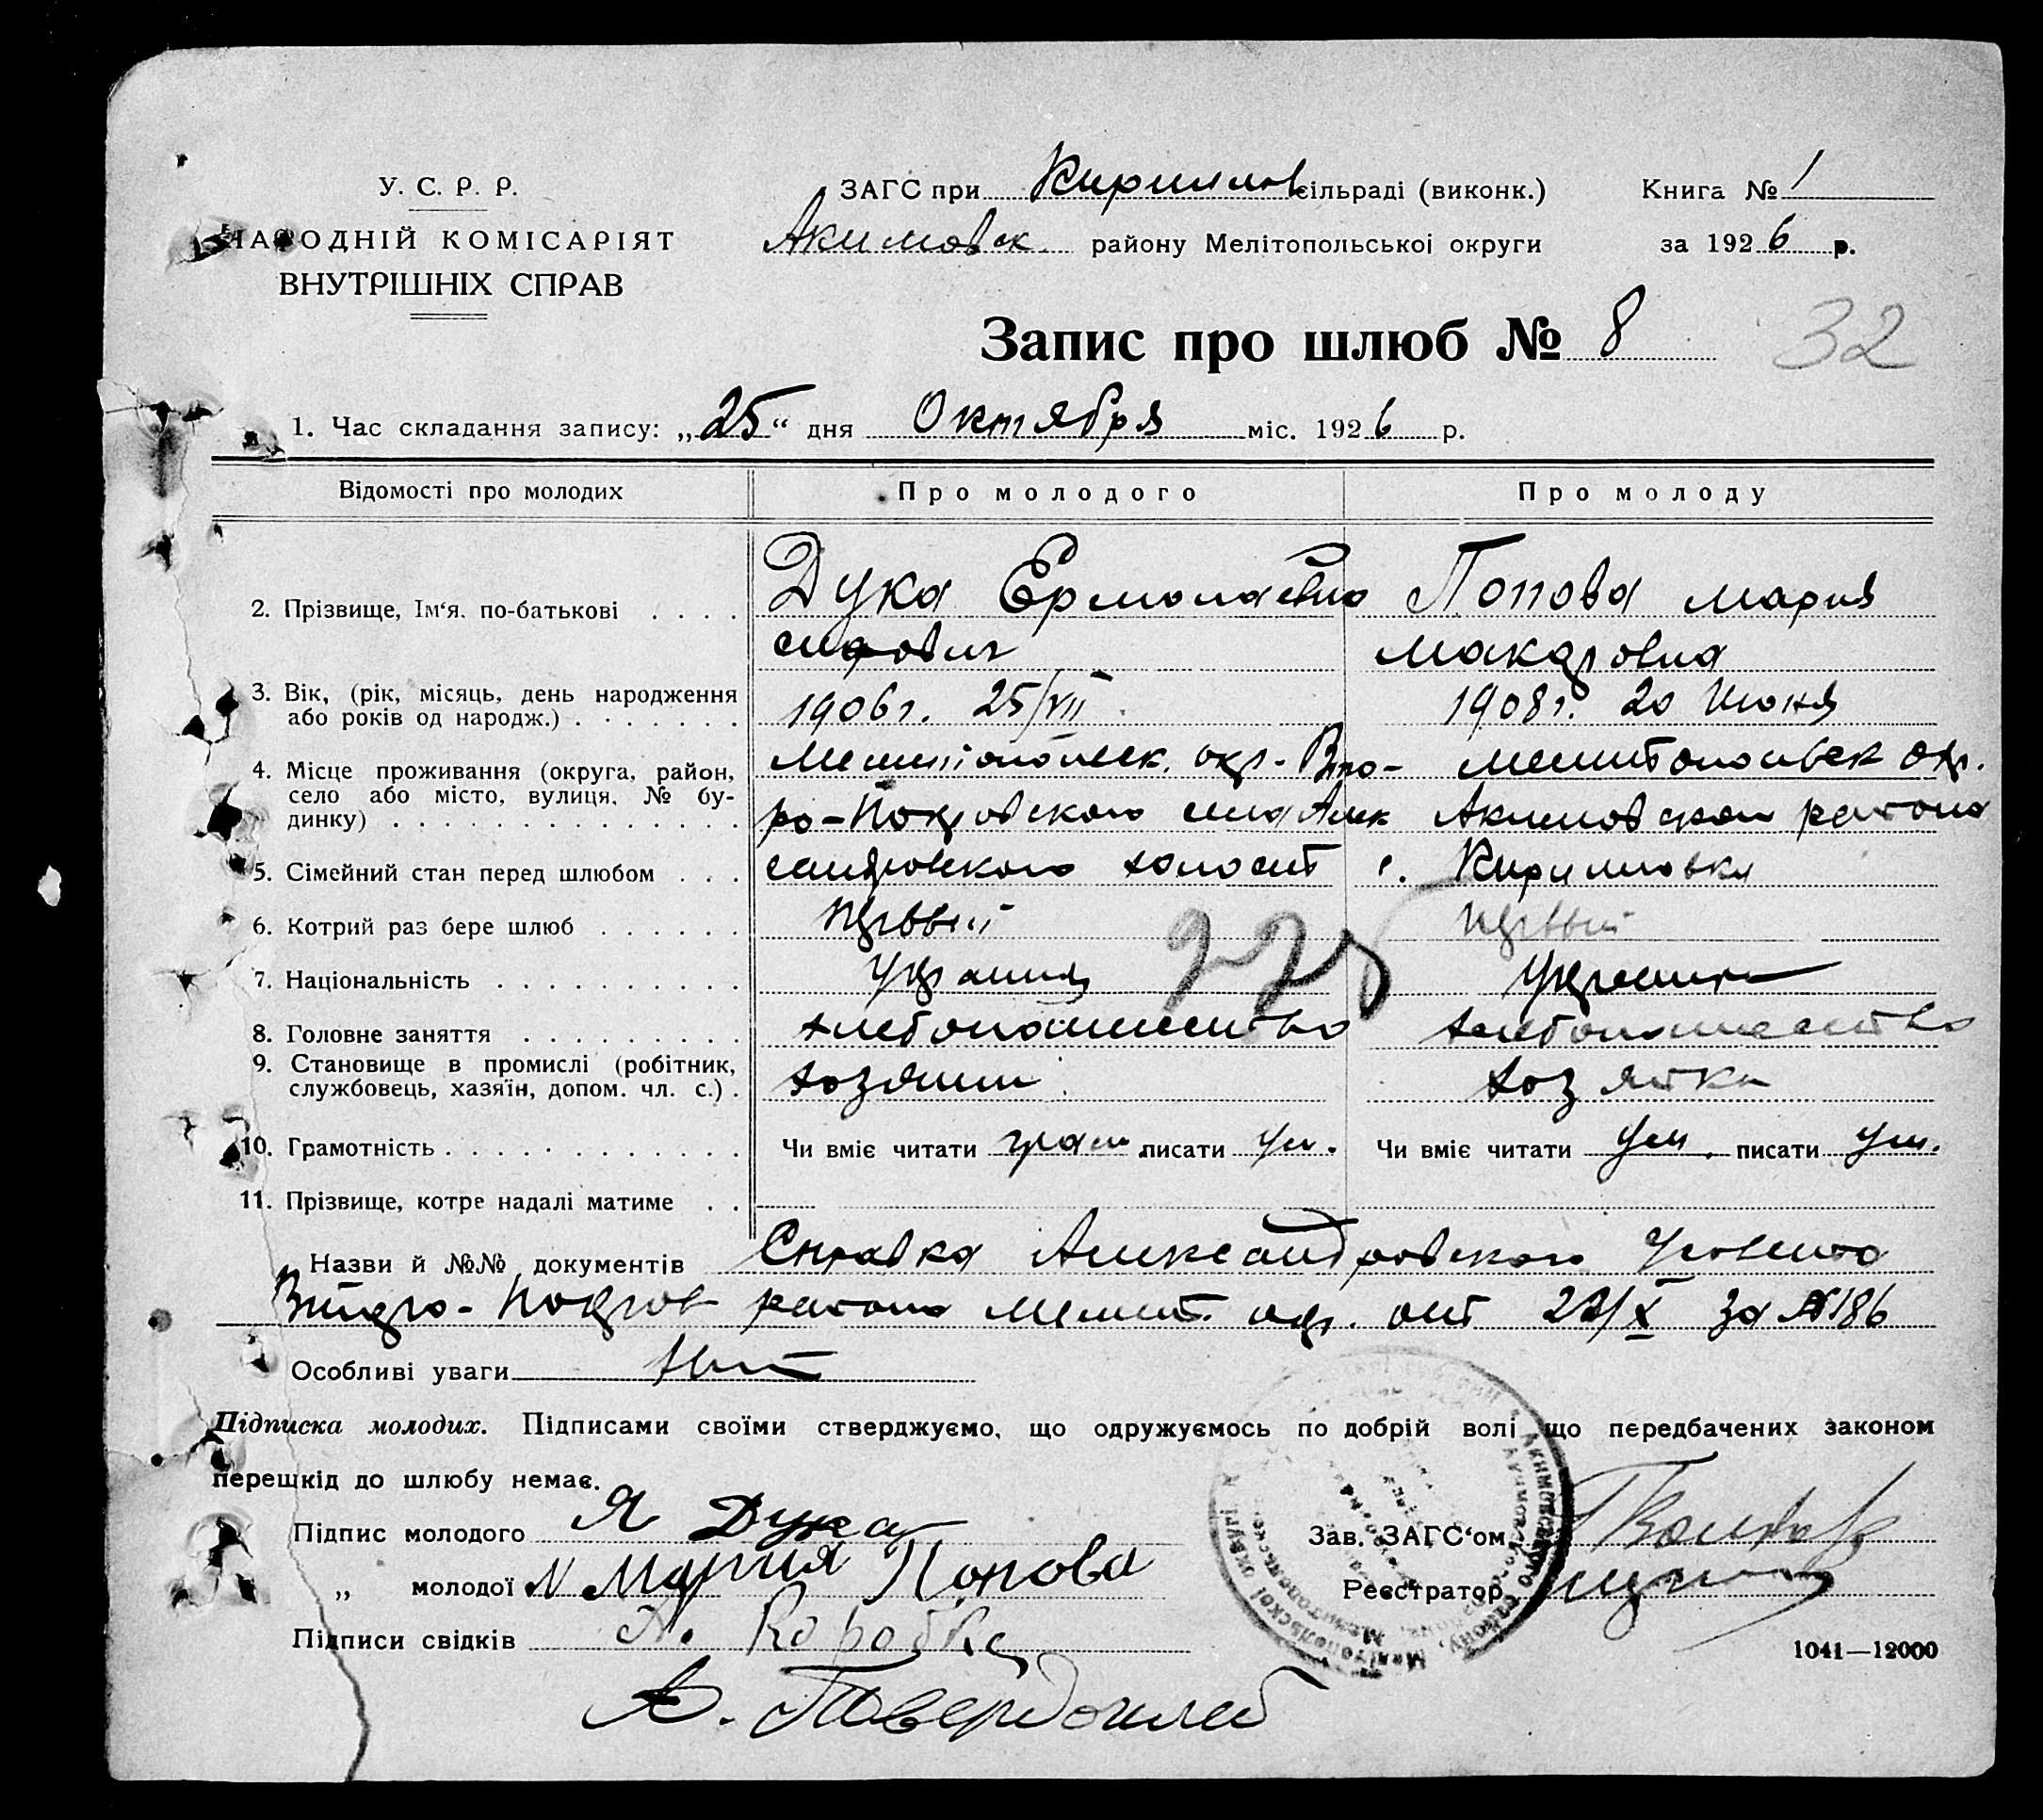 У. С. Р. Р.
НАРОДНІЙ КОМІСАРІЯТ
ВНУТРІШНІХ СПРАВ
ЗАГС при Кириллов сільраді (виконк.) Книга № 1
Акимовск району Мелітопольської округи за 1926 р.
Запис про шлюб № 8 32
1. Час складання запису: „25“ дня Октября міс. 1926 р.
Відомості про молодих Про молодого Про молоду
2. Прізвище, Ім‘я. по-батькові Дука Ермолай Попова Мария
Макаровна
3. Вік, (рік, місяць, день народження 1906 г. 25/VII 1908 г. 20 Июня
або років од народж.)
4. Місце проживання (округа, район, Мелитопольск. окр. Вто- Мелитопольск окр.
село або місто, вулиця, № бу- ро-Покровского села Алек Акимовского района
динку)
5. Сімейний стан перед шлюбом сандровского холост с. Кирилловка
6. Котрий раз бере шлюб первый первый
225
7. Національність украинец
8. Головне заняття хлебопашество хлебопашество
9. Становище в промислі (робітник, хозяин хозяйка
службовець, хазяїн, допом. чл. с.)
10. Грамотність Чи вміє читати грам писати ум. Чи вміє читати ум. писати ум.
11. Прізвище, котре надалі матиме
Назви й №№ документів Справка Александровского
Покров района Мелит. окр. от 22/X за №186
Особливі уваги нет
Підписка молодих. Підписами своїми стверджуємо, що одружуємось по добрій волі що передбачених законом
перешкід до шлюбу немає.
Підпис молодого Я Дука Зав. ЗАГС‘ом
„ молодої Мария Попова Реєстратор
Підписи свідків А. Коробка
1041—12000
А. Твердохлеб